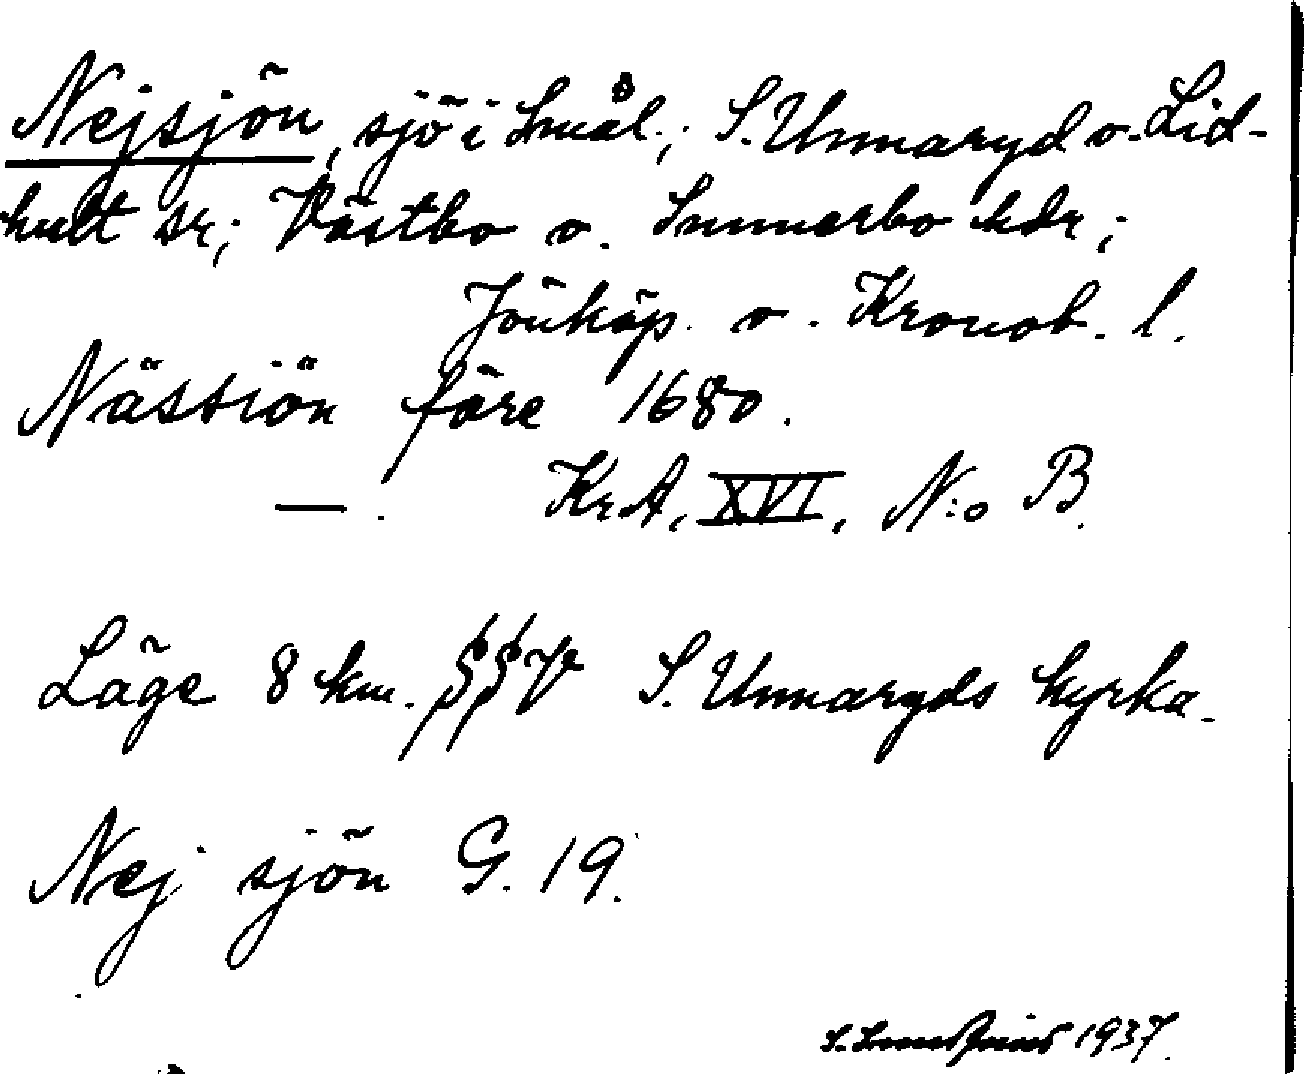 Nejsjön, sjö i Smål.; S. Unnaryd o. Lid-
hult sr; Västbo o. Sunnerbo hdr;
Jönköp. o. Kronob. l.
Nässiön före 1680.
—. Kr.A, XVI, N:o B.
Läge 8 km. SSV S. Unnaryds kyrka.
Nej sjön G. 19.
1937.